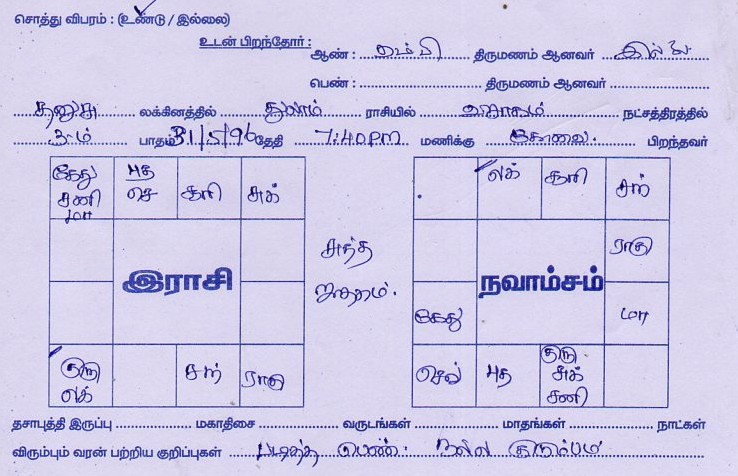 சொத்து விபரம் : (உண்டு / இல்லை)
உடன் பிறந்தோர் : ஆண் : தம்பி திருமணம் ஆனவர் இல்லை
பெண் : திருமணம் ஆனவர்
தனுசு லக்கினத்தில் துலாம் ராசியில் விசாகம் நட்சத்திரத்தில்
3ம் பாதம் 31/5/96 தேதி 7:40PM மணிக்கு கோவை. பிறந்தவர்
கேது சனி மா
புத செ
சூரி
சுக்
லக்
சூரி
சந்
இராசி
நவாம்சம்
ராகு
கேது
மா
குரு லக்
சந்
ராகு
செவ்
புத
குரு சுக் சனி
தசாபுத்தி இருப்பு மகாதிசை வருடங்கள் மாதங்கள் நாட்கள்
விரும்பும் வரன் பற்றிய குறிப்புகள் படித்த பெண். நல்ல குடும்பம்